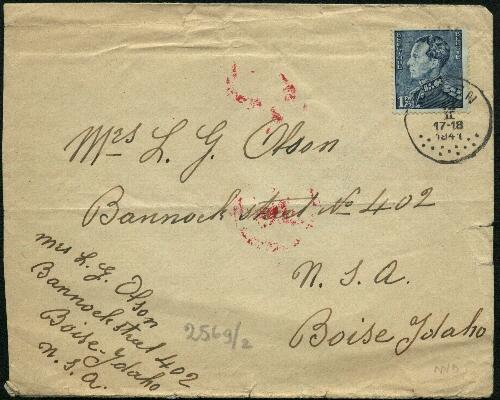 BELGIQUE BELGIE
1F75
N
II
17-18
1941
Mrs L. G. Olson
Bannock street No 402
N. S. A.
Boise Ydaho
mrs L. G. Olson
Bannock street 402
Boise-Ydaho
N. S. A.
2569/2